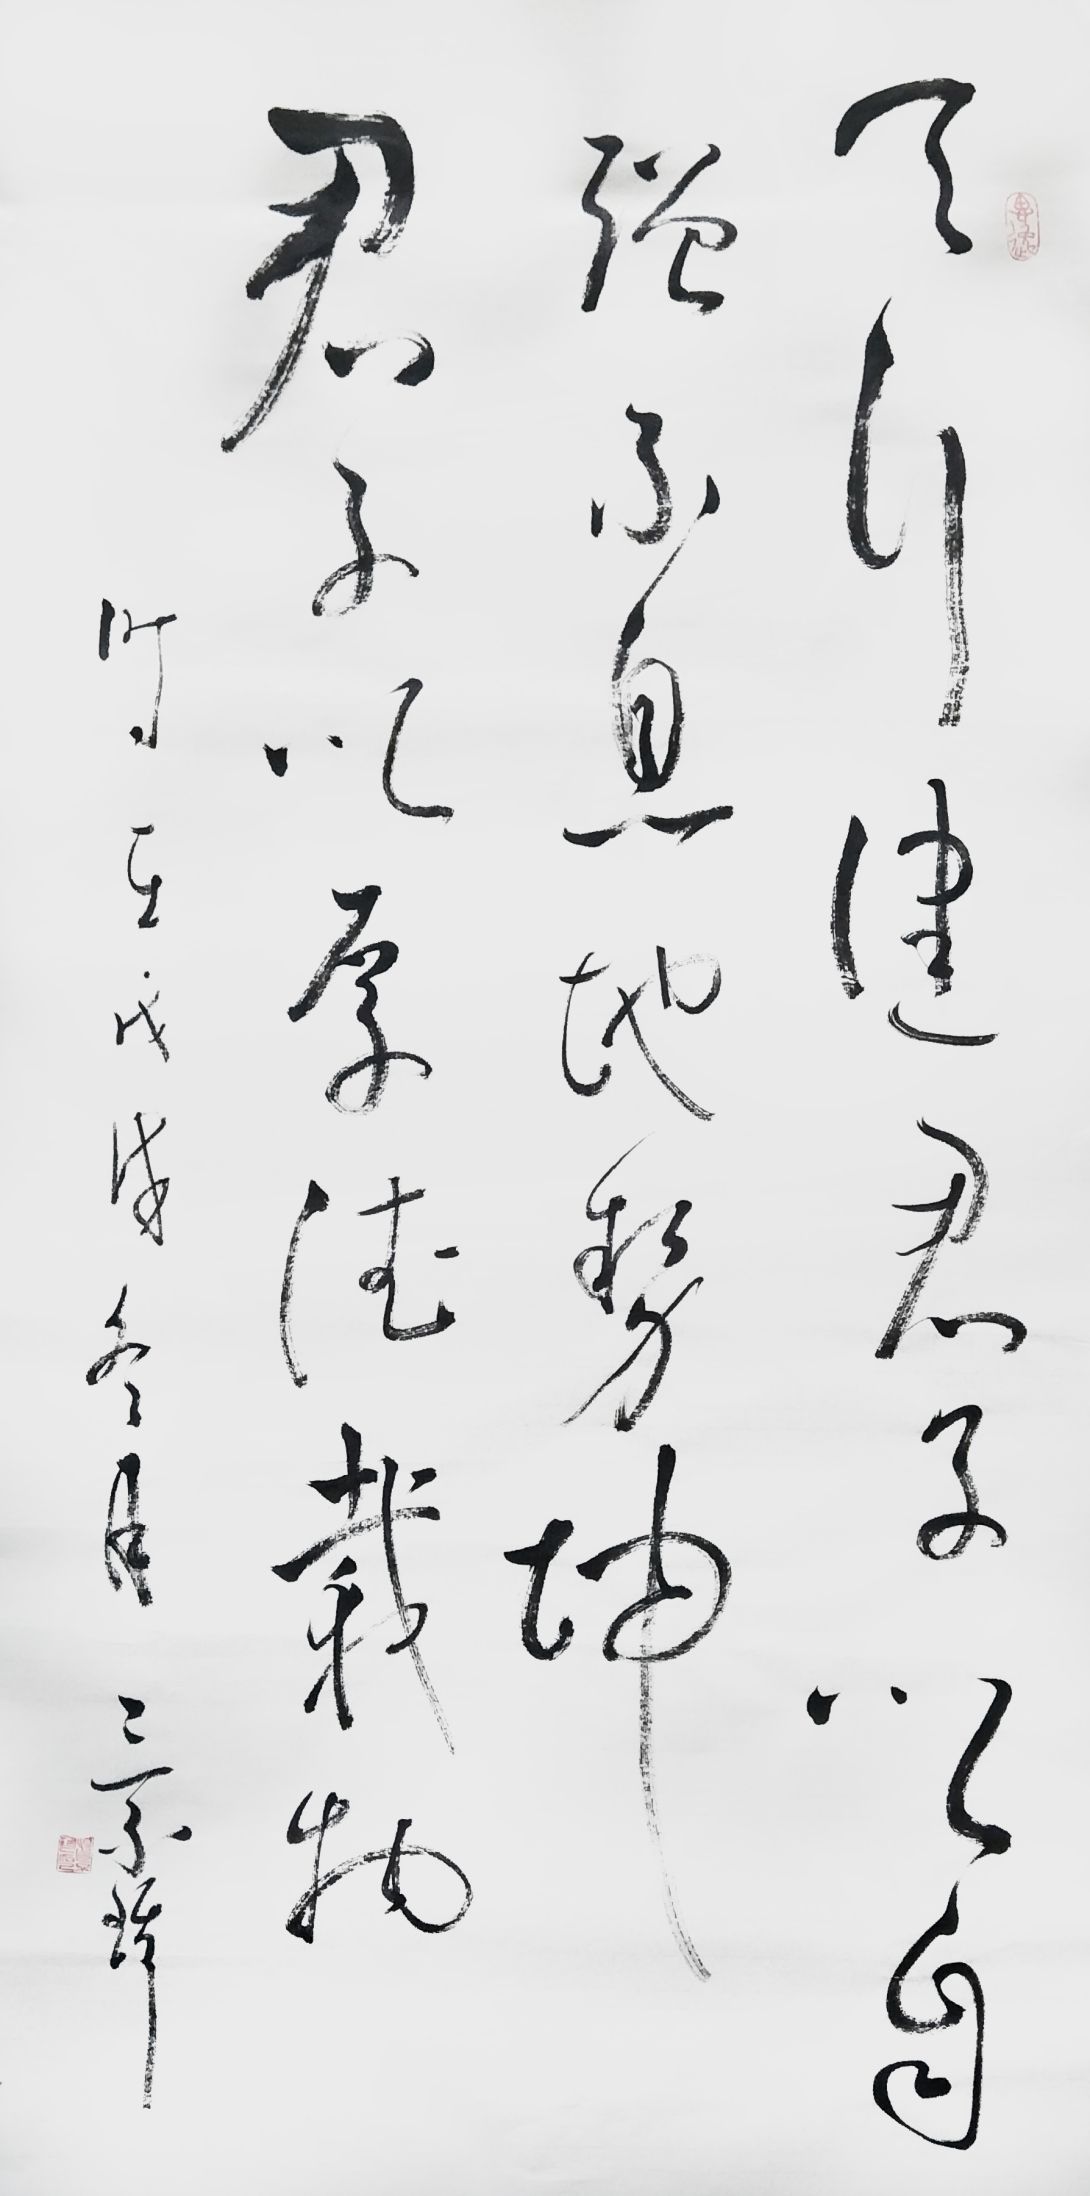 天行健君子以自
强不息地势坤
君子以厚德载物
时在戊戌冬月